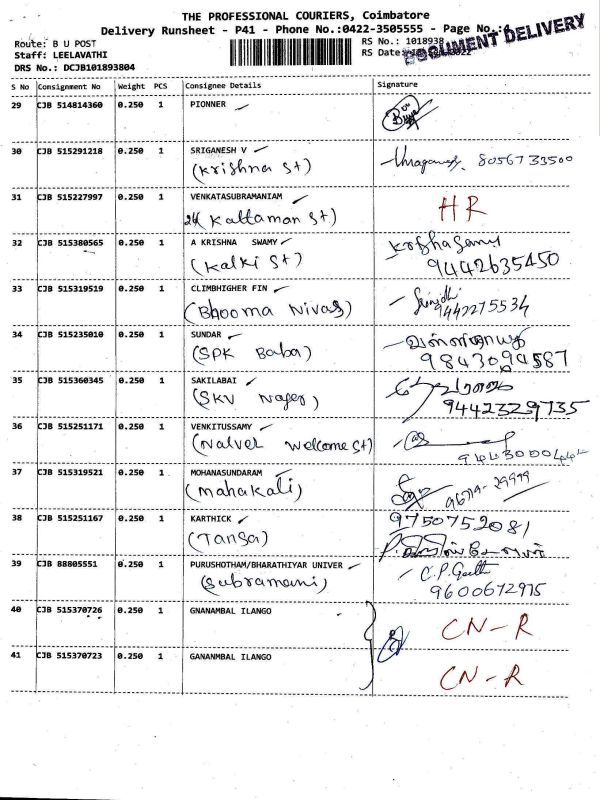 THE PROFESSIONAL COURIERS, Coimbatore
Delivery Runsheet - P41 - Phone No.:0422-3505555 - Page No.:
DOCUMENT DELIVERY
Route: B U POST
RS No.: 1018938
Staff: LEELAVATHI
RS Date:
DRS No.: DCJB101893804
S No Consignment No Weight PCS Consignee Details Signature
29 CJB 514814360 0.250 1 PIONNER
30 CJB 515291218 0.250 1 SRIGANESH V
(Krishna St) 8056733500
31 CJB 515227997 0.250 1 VENKATASUBRAMANIAM
(Kattaman St) HR
32 CJB 515380565 0.250 1 A KRISHNA SWAMY
(Kalki St) 9442635450
33 CJB 515319519 0.250 1 CLIMBHIGHER FIN
(Bhooma Nivas) 9442275534
34 CJB 515235010 0.250 1 SUNDAR
(SPK Baba) 9843094587
35 CJB 515360345 0.250 1 SAKILABAI
(SKV Nager) 9442329735
36 CJB 515251171 0.250 1 VENKITUSSAMY
(Nalver Welcome St)
37 CJB 515319521 0.250 1 MOHANASUNDARAM
(Mahakali)
38 CJB 515251167 0.250 1 KARTHICK 9750752081
(Tansa)
39 CJB 88805551 0.250 1 PURUSHOTHAM/BHARATHIYAR UNIVER
(Subramani) 9600672975
40 CJB 515370726 0.250 1 GNANAMBAL ILANGO CN-R
41 CJB 515370723 0.250 1 GANANMBAL ILANGO CN-R